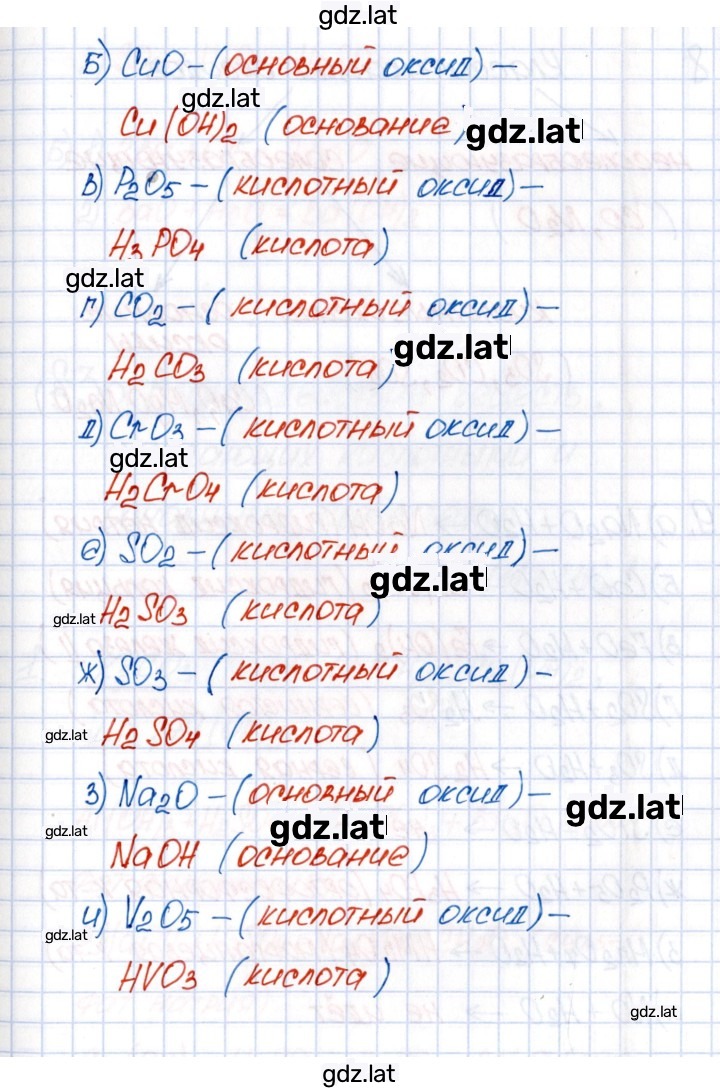 gdz.lat
Б) CuO – (основный оксид) –
gdz.lat
Cu(OH)2 (основание) gdz.lat
в) P2O5 – (кислотный оксид) –
H3PO4 (кислота)
gdz.lat
г) CO2 – (кислотный оксид) –
gdz.lat
H2CO3 (кислота)
д) CrO3 – (кислотный оксид) –
gdz.lat
H2CrO4 (кислота)
е) SO2 – (кислотный оксид) –
gdz.lat
gdz.lat H2SO3 (кислота)
ж) SO3 – (кислотный оксид) –
gdz.lat H2SO4 (кислота)
з) Na2O – (основный оксид) –
gdz.lat
gdz.lat gdz.lat
NaOH (основание)
и) V2O5 – (кислотный оксид) –
gdz.lat
HVO3 (кислота)
gdz.lat
gdz.lat